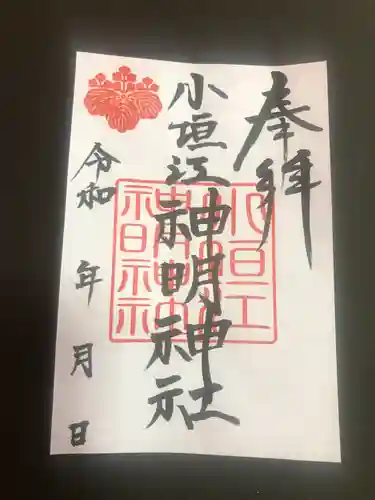 奉拝
小垣江神明神社
令和 年 月 日
小垣江
神明神社